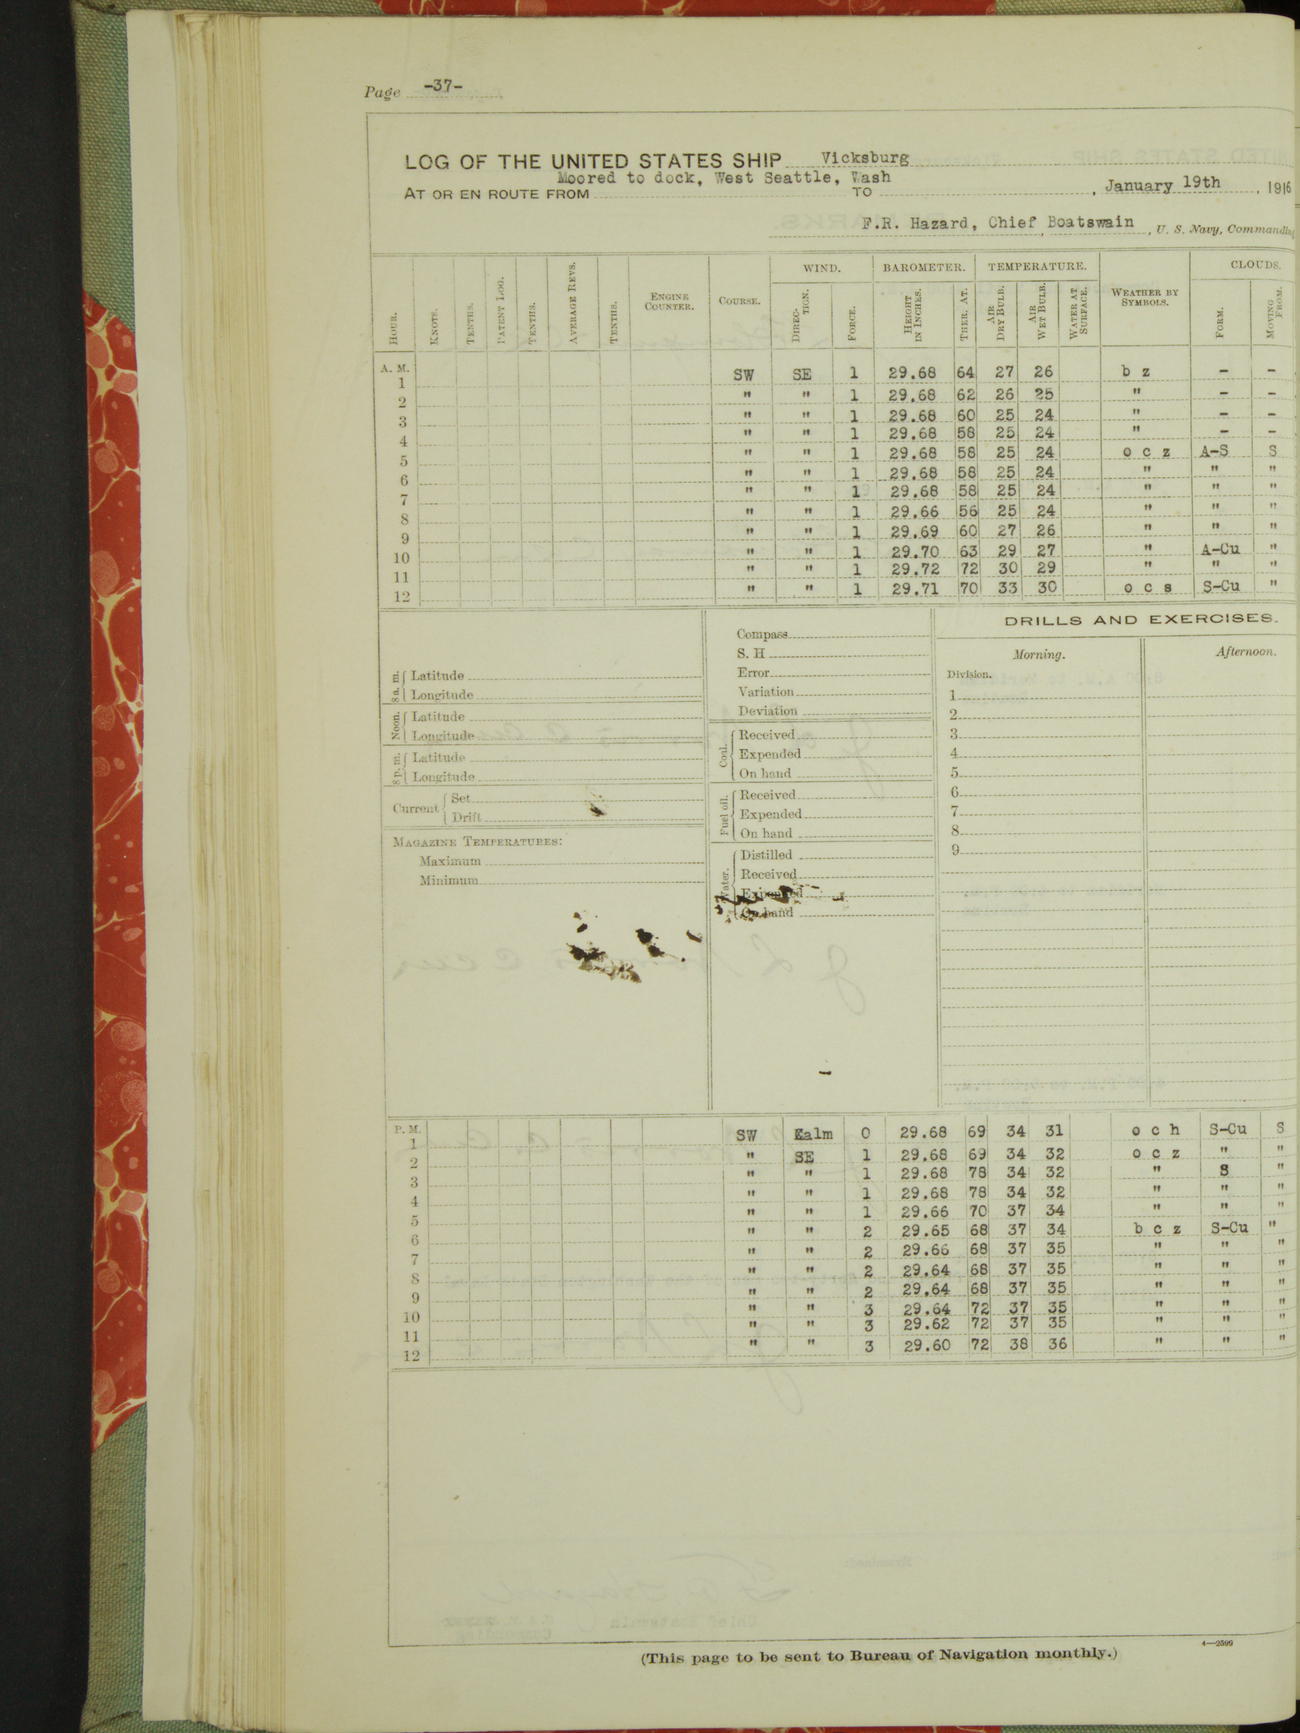 Page -37-
LOG OF THE UNITED STATES SHIP Vicksburg
Moored to dock, West Seattle, Wash
AT OR EN ROUTE FROM TO , January 19th , 1916
F.R. Hazard, Chief Boatswain , U. S. Navy, Commanding
HOUR. KNOTS. TENTHS. PATENT LOG. TENTHS. AVERAGE REVS. TENTHS. ENGINE COUNTER. COURSE. WIND. DIRECTION. FORCE. BAROMETER. HEIGHT IN INCHES. THER. AT. TEMPERATURE. AIR DRY BULB. AIR WET BULB. WATER AT SURFACE. WEATHER BY SYMBOLS. CLOUDS. FORM. MOVING FROM.
A. M.
1 SW SE 1 29.68 64 27 26 b z - -
2 " " 1 29.68 62 26 25 " - -
3 " " 1 29.68 60 25 24 " - -
4 " " 1 29.68 58 25 24 " - -
5 " " 1 29.68 58 25 24 o c z A-S S
6 " " 1 29.68 58 25 24 " " "
7 " " 1 29.68 58 25 24 " " "
8 " " 1 29.66 56 25 24 " " "
9 " " 1 29.69 60 27 26 " " "
10 " " 1 29.70 63 29 27 " A-Cu "
11 " " 1 29.72 72 30 29 " " "
12 " " 1 29.71 70 33 30 o c s S-Cu "
8 a. m. Latitude
Longitude
Noon. Latitude
Longitude
8 p. m. Latitude
Longitude
Current Set
Drift
MAGAZINE TEMPERATURES:
Maximum
Minimum
Compass
S. H
Error
Variation
Deviation
Coal. Received
Expended
On hand
Fuel oil. Received
Expended
On hand
Water. Distilled
Received
Expended
On hand
DRILLS AND EXERCISES.
Morning. Afternoon.
Division.
1
2
3
4
5
6
7
8
9
P. M.
1 SW Ealm 0 29.68 69 34 31 o c h S-Cu S
2 " SE 1 29.68 69 34 32 o c z " "
3 " " 1 29.68 78 34 32 " S "
4 " " 1 29.68 78 34 32 " " "
5 " " 1 29.66 70 37 34 " " "
6 " " 2 29.65 68 37 34 b c z S-Cu "
7 " " 2 29.66 68 37 35 " " "
8 " " 2 29.64 68 37 35 " " "
9 " " 2 29.64 68 37 35 " " "
10 " " 3 29.64 72 37 35 " " "
11 " " 3 29.62 72 37 35 " " "
12 " " 3 29.60 72 38 36 " " "
4—2599
(This page to be sent to Bureau of Navigation monthly.)